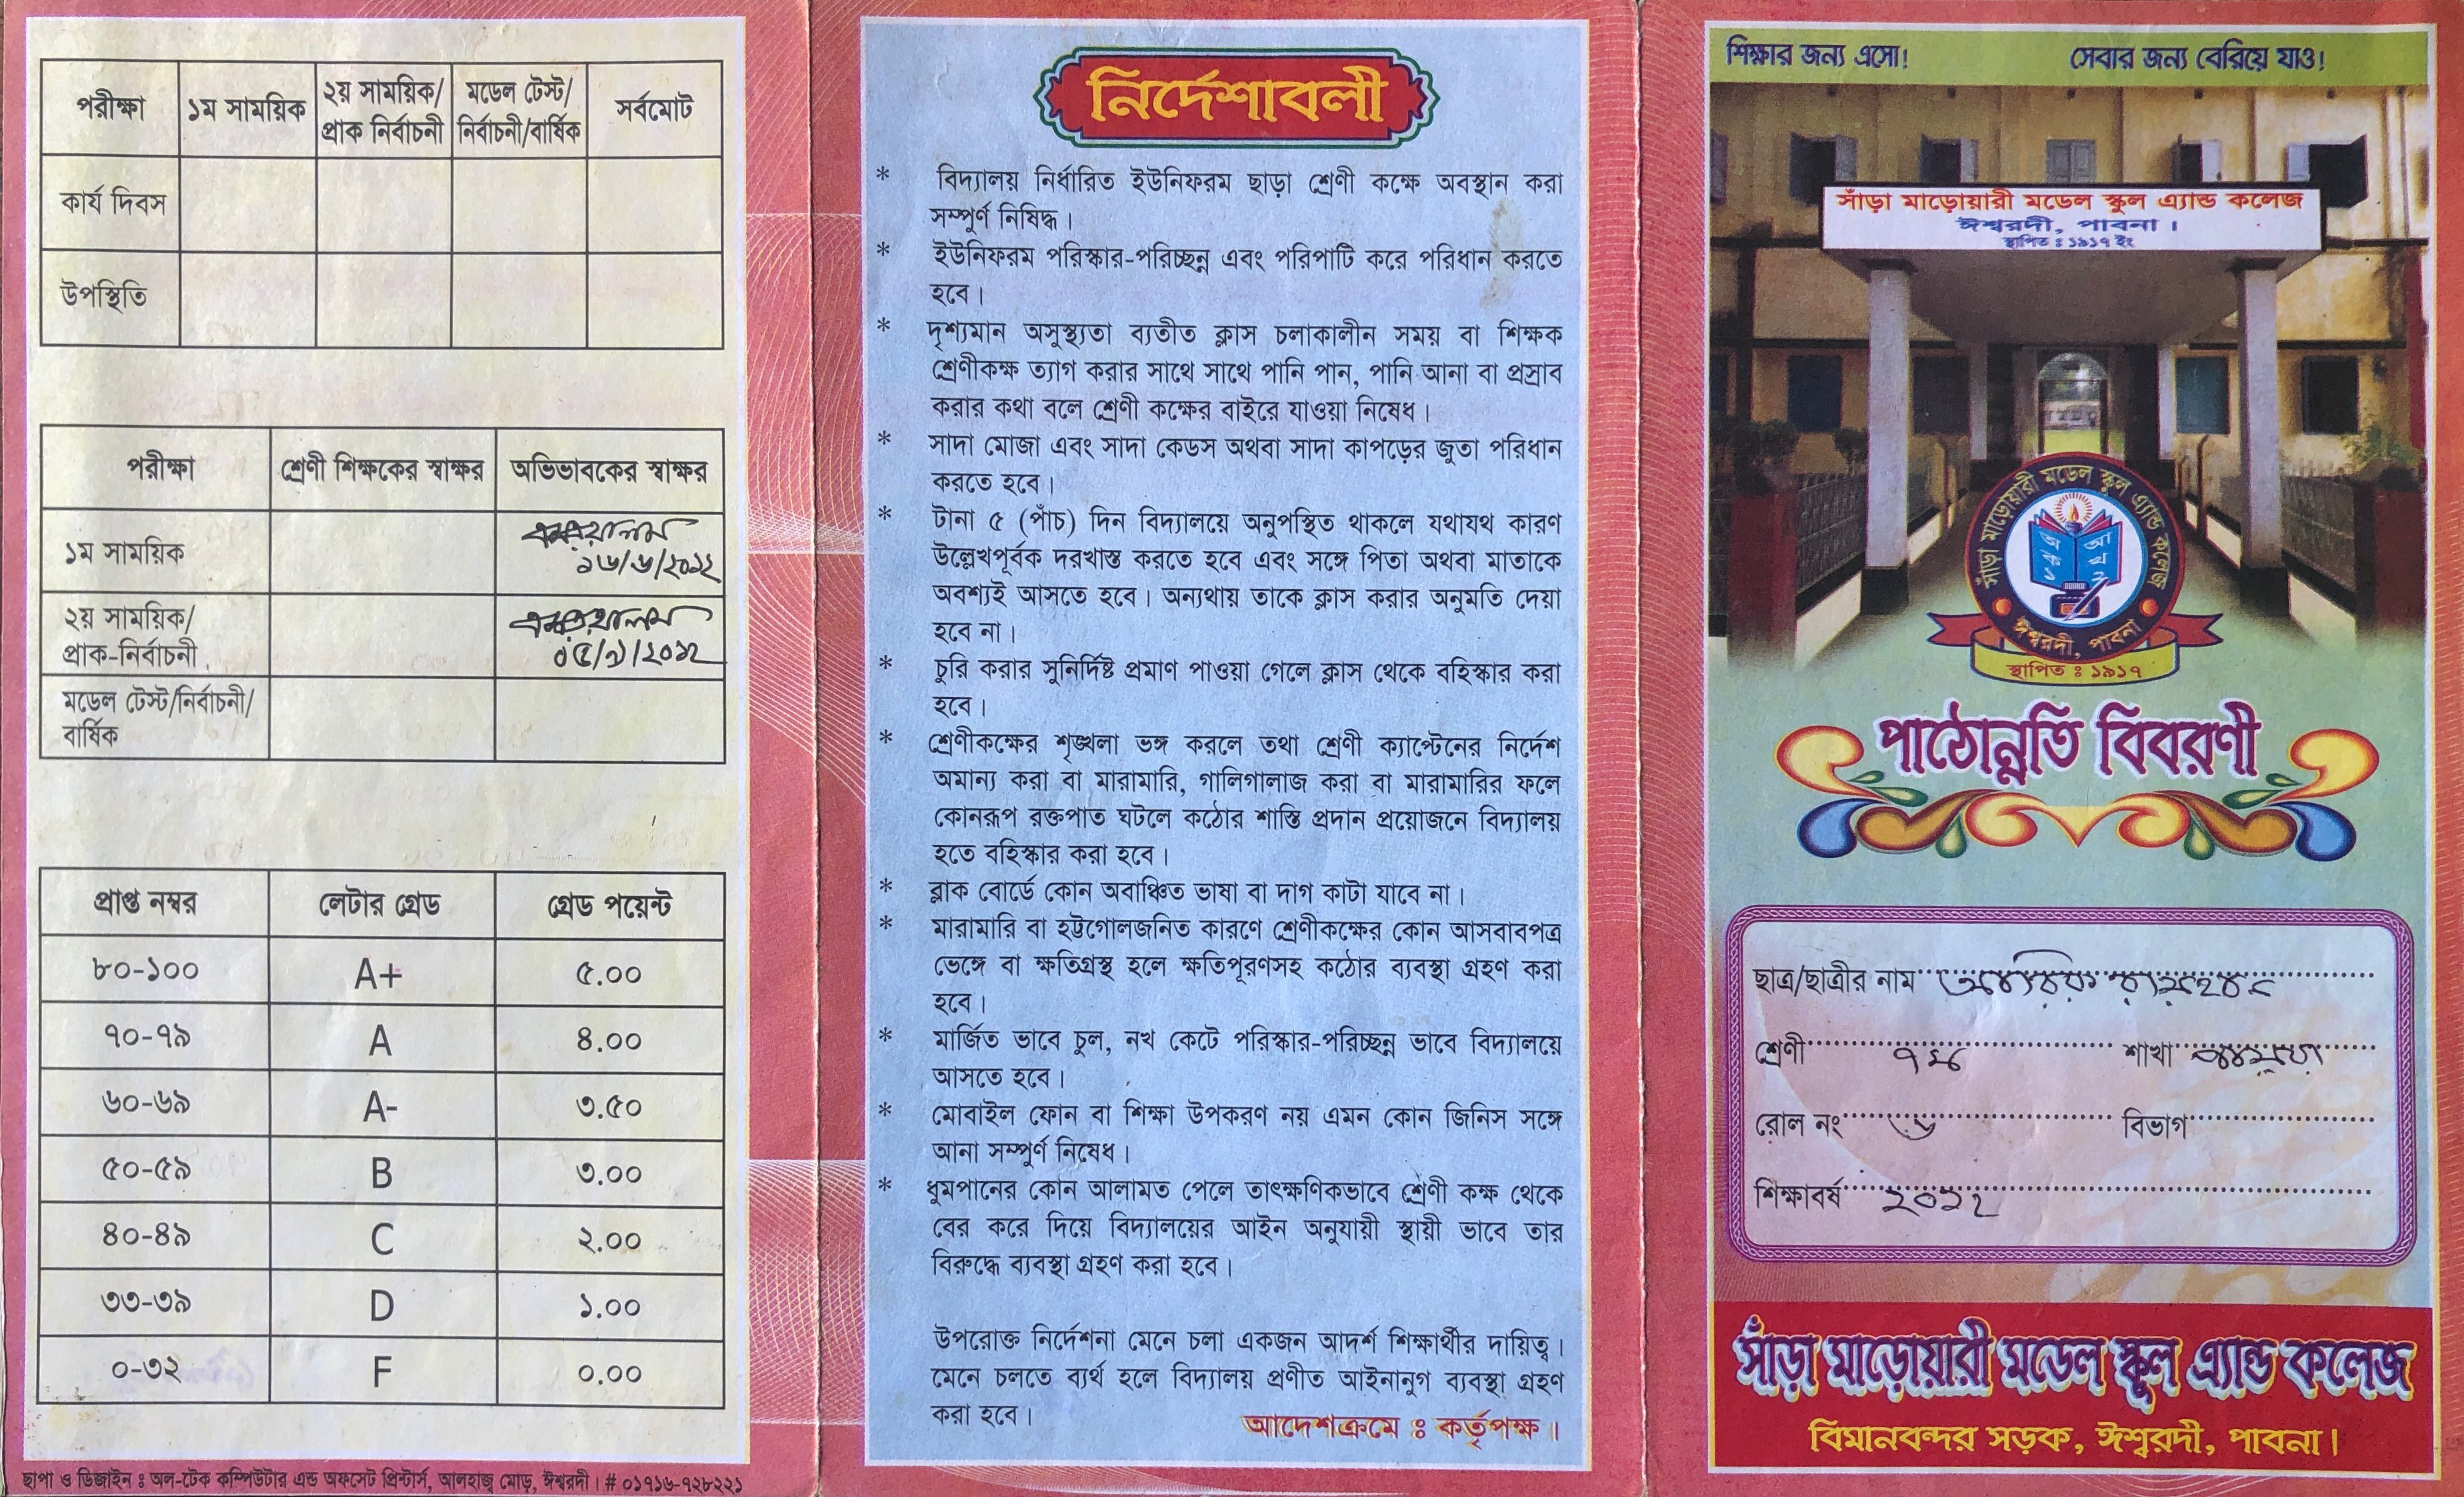 পরীক্ষা ১ম সাময়িক ২য় সাময়িক/ প্রাক নির্বাচনী মডেল টেস্ট/ নির্বাচনী/বার্ষিক সর্বমোট
কার্য দিবস
উপস্থিতি
পরীক্ষা শ্রেণী শিক্ষকের স্বাক্ষর অভিভাবকের স্বাক্ষর
১ম সাময়িক
১৬/৬/২০১২
২য় সাময়িক/
প্রাক-নির্বাচনী
০৫/৯/২০১২
মডেল টেস্ট/নির্বাচনী/
বার্ষিক
প্রাপ্ত নম্বর লেটার গ্রেড গ্রেড পয়েন্ট
৮০-১০০ A+ ৫.০০
৭০-৭৯ A ৪.০০
৬০-৬৯ A- ৩.৫০
৫০-৫৯ B ৩.০০
৪০-৪৯ C ২.০০
৩৩-৩৯ D ১.০০
০-৩২ F ০.০০
ছাপা ও ডিজাইন ঃ অল-টেক কম্পিউটার এন্ড অফসেট প্রিন্টার্স, আলহাজ্ব মোড়, ঈশ্বরদী। # ০১৭১৬-৭২৮২২১
নির্দেশাবলী
* বিদ্যালয় নির্ধারিত ইউনিফরম ছাড়া শ্রেণী কক্ষে অবস্থান করা
সম্পুর্ণ নিষিদ্ধ।
* ইউনিফরম পরিস্কার-পরিচ্ছন্ন এবং পরিপাটি করে পরিধান করতে
হবে।
* দৃশ্যমান অসুস্থ্যতা ব্যতীত ক্লাস চলাকালীন সময় বা শিক্ষক
শ্রেণীকক্ষ ত্যাগ করার সাথে সাথে পানি পান, পানি আনা বা প্রস্রাব
করার কথা বলে শ্রেণী কক্ষের বাইরে যাওয়া নিষেধ।
* সাদা মোজা এবং সাদা কেডস অথবা সাদা কাপড়ের জুতা পরিধান
করতে হবে।
* টানা ৫ (পাঁচ) দিন বিদ্যালয়ে অনুপস্থিত থাকলে যথাযথ কারণ
উল্লেখপূর্বক দরখাস্ত করতে হবে এবং সঙ্গে পিতা অথবা মাতাকে
অবশ্যই আসতে হবে। অন্যথায় তাকে ক্লাস করার অনুমতি দেয়া
হবে না।
* চুরি করার সুনির্দিষ্ট প্রমাণ পাওয়া গেলে ক্লাস থেকে বহিস্কার করা
হবে।
* শ্রেণীকক্ষের শৃঙ্খলা ভঙ্গ করলে তথা শ্রেণী ক্যাপ্টেনের নির্দেশ
অমান্য করা বা মারামারি, গালিগালাজ করা বা মারামারির ফলে
কোনরূপ রক্তপাত ঘটলে কঠোর শাস্তি প্রদান প্রয়োজনে বিদ্যালয়
হতে বহিস্কার করা হবে।
* ব্লাক বোর্ডে কোন অবাঞ্চিত ভাষা বা দাগ কাটা যাবে না।
* মারামারি বা হট্টগোলজনিত কারণে শ্রেণীকক্ষের কোন আসবাবপত্র
ভেঙ্গে বা ক্ষতিগ্রস্থ হলে ক্ষতিপূরণসহ কঠোর ব্যবস্থা গ্রহণ করা
হবে।
* মার্জিত ভাবে চুল, নখ কেটে পরিস্কার-পরিচ্ছন্ন ভাবে বিদ্যালয়ে
আসতে হবে।
* মোবাইল ফোন বা শিক্ষা উপকরণ নয় এমন কোন জিনিস সঙ্গে
আনা সম্পুর্ণ নিষেধ।
* ধুমপানের কোন আলামত পেলে তাৎক্ষণিকভাবে শ্রেণী কক্ষ থেকে
বের করে দিয়ে বিদ্যালয়ের আইন অনুযায়ী স্থায়ী ভাবে তার
বিরুদ্ধে ব্যবস্থা গ্রহণ করা হবে।
উপরোক্ত নির্দেশনা মেনে চলা একজন আদর্শ শিক্ষার্থীর দায়িত্ব।
মেনে চলতে ব্যর্থ হলে বিদ্যালয় প্রণীত আইনানুগ ব্যবস্থা গ্রহণ
করা হবে।
আদেশক্রমে ঃ কর্তৃপক্ষ॥
শিক্ষার জন্য এসো! সেবার জন্য বেরিয়ে যাও!
সাঁড়া মাড়োয়ারী মডেল স্কুল এ্যান্ড কলেজ
ঈশ্বরদী, পাবনা।
স্থাপিত ঃ ১৯১৭ ইং
সাঁড়া মাড়োয়ারী মডেল স্কুল এ্যান্ড কলেজ
অ আ ক খ ১ ২
ঈশ্বরদী, পাবনা
স্থাপিত ঃ ১৯১৭
পাঠোন্নতি বিবরণী
ছাত্র/ছাত্রীর নাম
শ্রেণী ৭ম শাখা
রোল নং ৬ বিভাগ
শিক্ষাবর্ষ ২০১২
সাঁড়া মাড়োয়ারী মডেল স্কুল এ্যান্ড কলেজ
বিমানবন্দর সড়ক, ঈশ্বরদী, পাবনা।